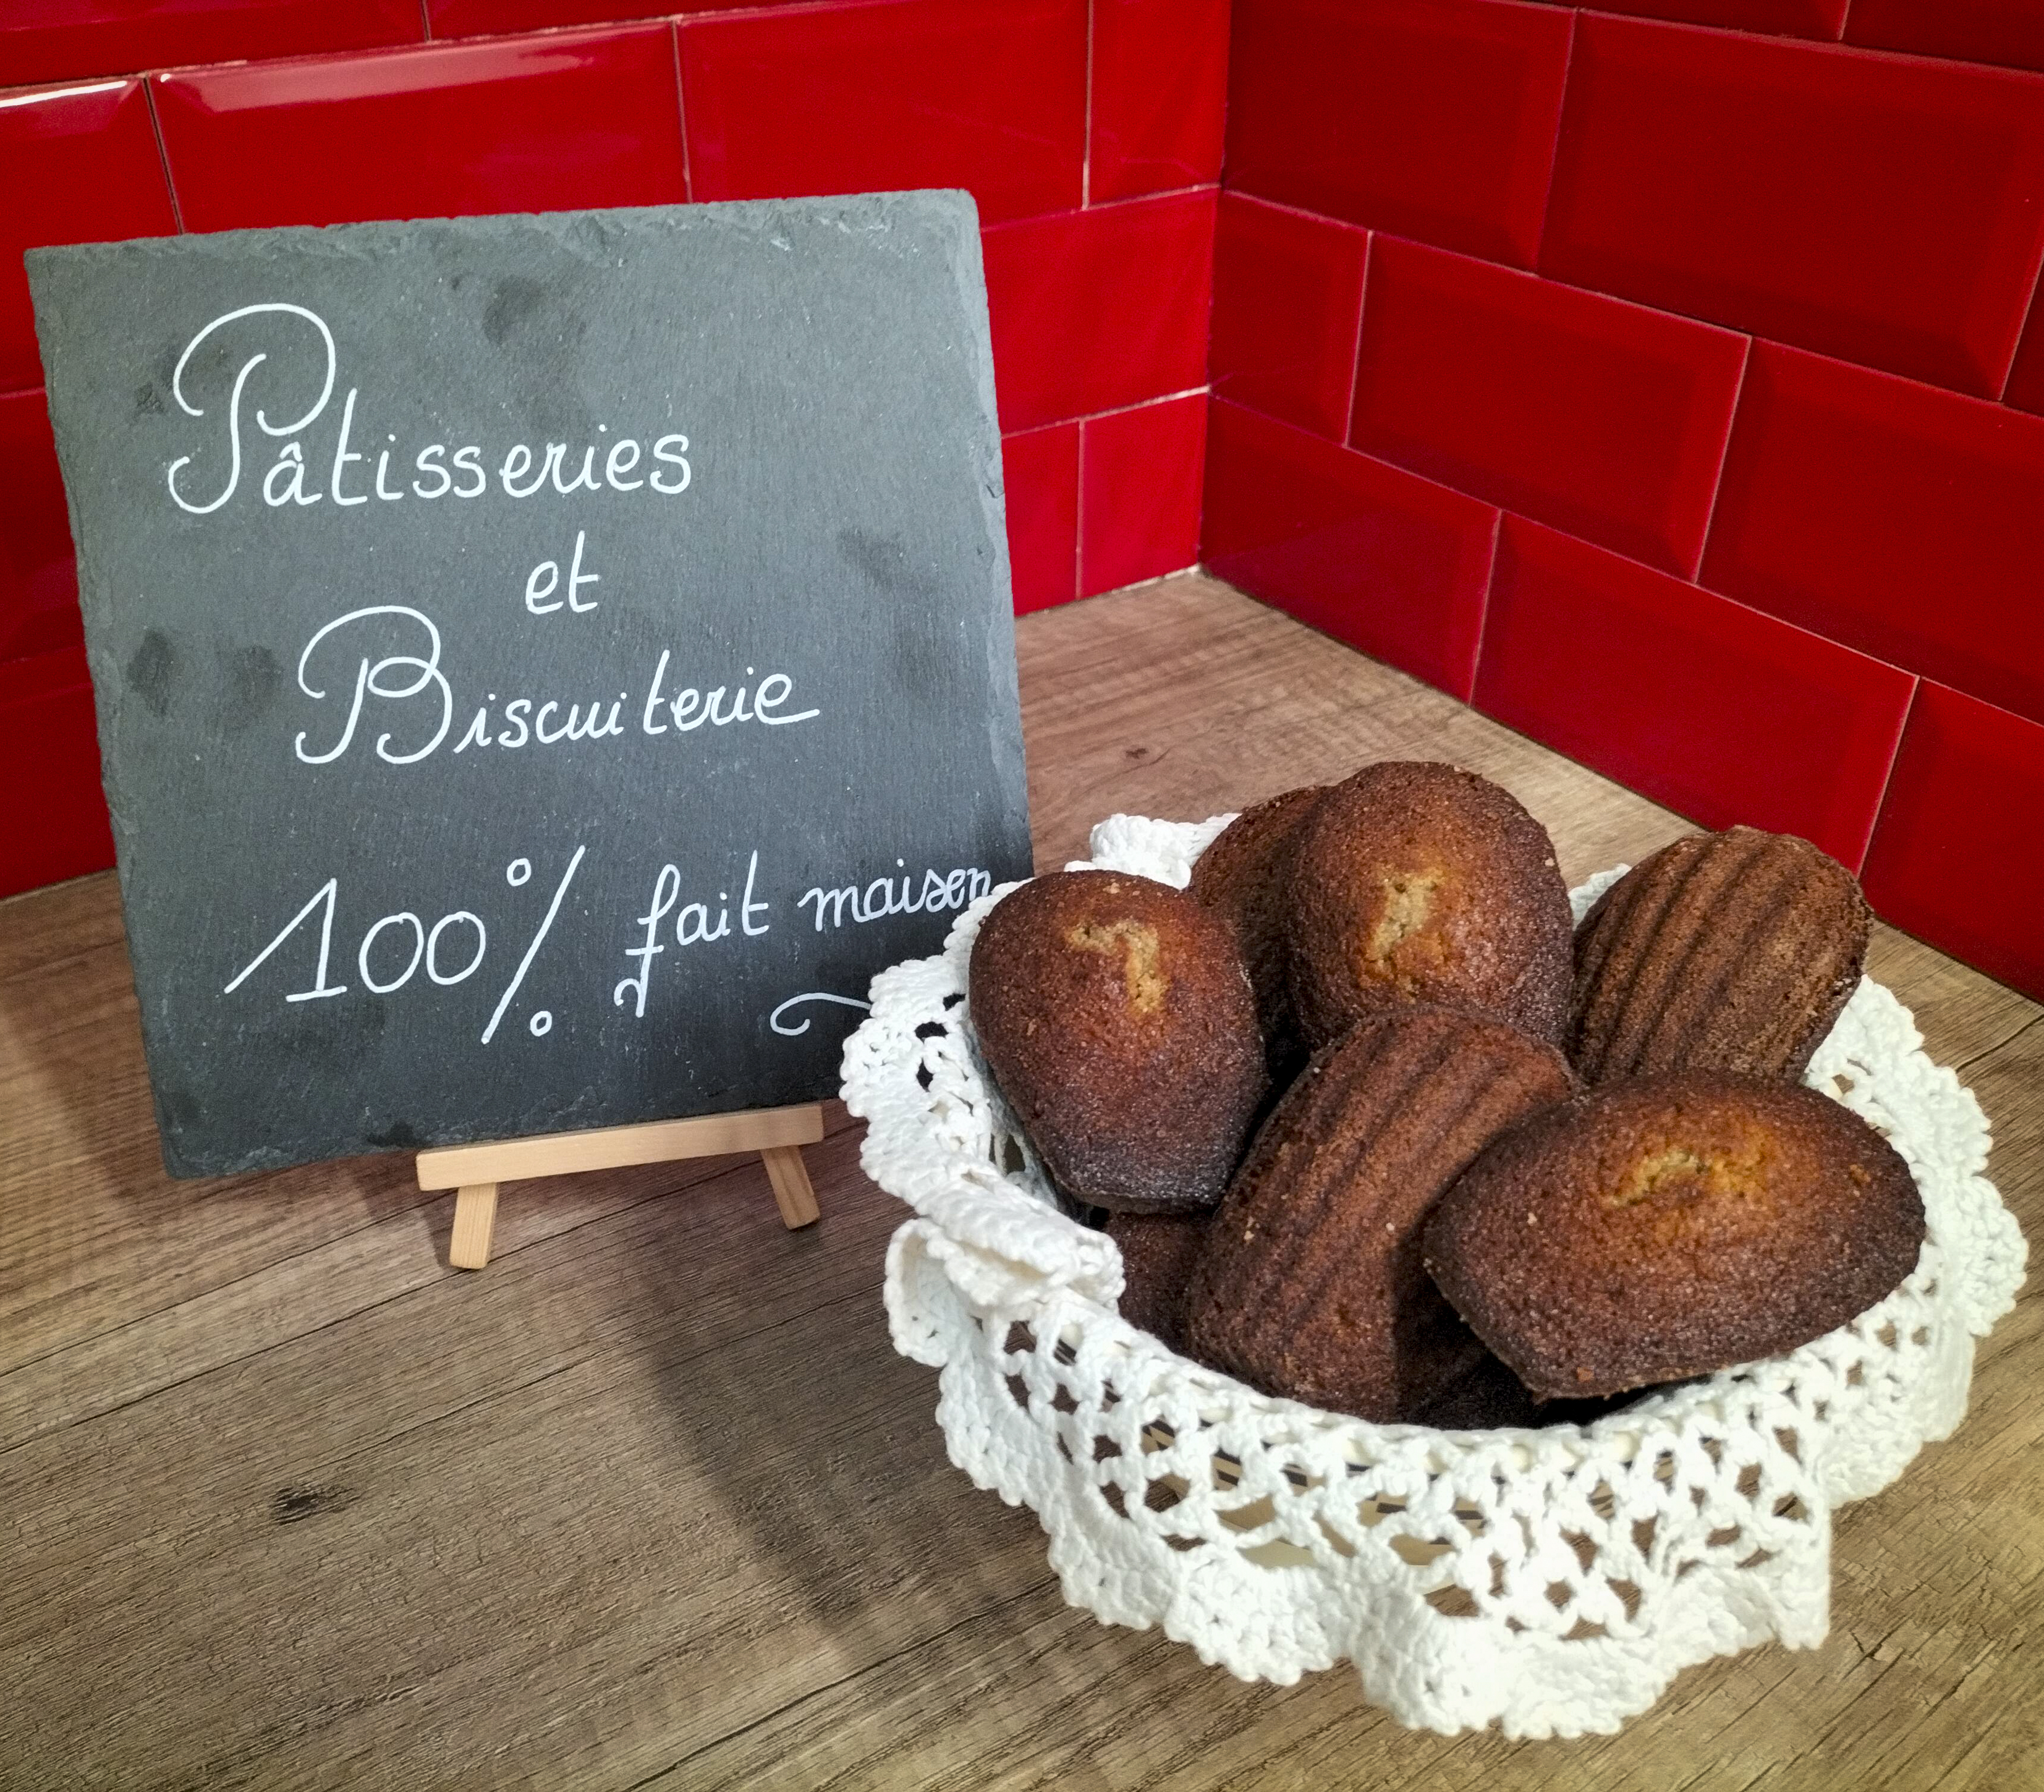 Pâtisseries
et
Biscuiterie
100% fait maison